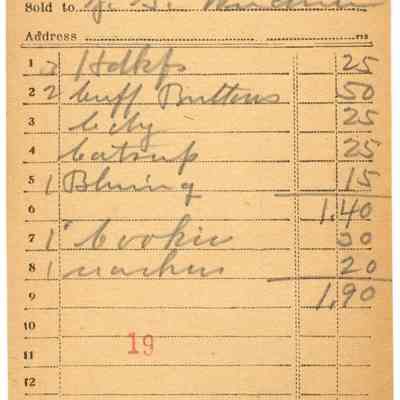 Sold to J. S.
Address
1 2 Hdkfs 25
2 2 Cuff Buttons 50
3 City 25
4 Catsup 25
5 1 Bluing 15
6 1.40
7 1 Cookie 30
8 1 20
9 1.90
10
11 19
12